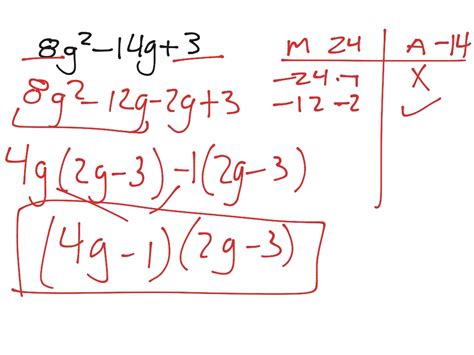 8g²-14g+3
8g²-12g-2g+3
4g(2g-3)-1(2g-3)
(4g-1)(2g-3)
M 24 A -14
-24 -1 X
-12 -2 ✓